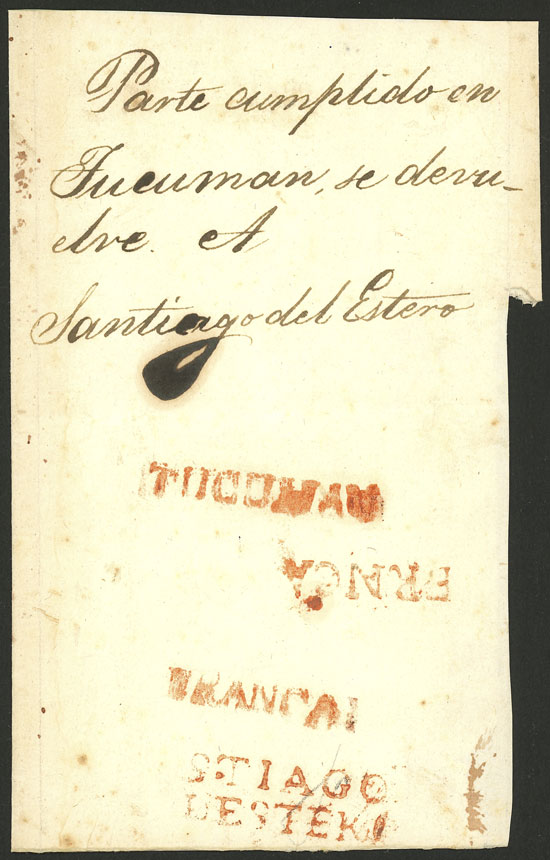 Parte cumplido en
Tucuman, se devu-
elve. A
Santiago del Estero
TUCUMAN
FRANCA
FRANCA
S.TIAGO
DESTERO